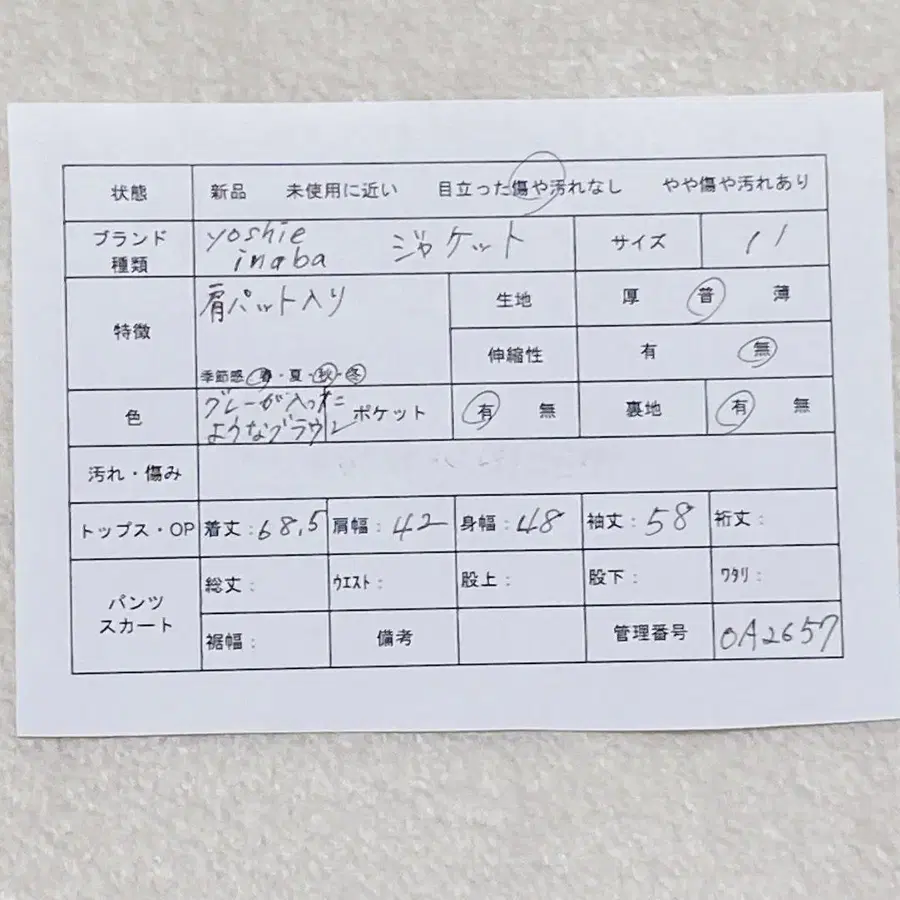 状態 新品 未使用に近い 目立った傷や汚れなし やや傷や汚れあり
ブランド 種類 yoshie inaba ジャケット サイズ 11
特徴 肩パット入り 生地 厚 普 薄
季節感 春・夏・秋・冬 伸縮性 有 無
色 グレーが入った ようなブラウン ポケット 有 無 裏地 有 無
汚れ・傷み
トップス・OP 着丈:68.5 肩幅:42 身幅:48 袖丈:58 裄丈:
パンツ スカート 総丈: ウエスト: 股上: 股下: ワタリ:
裾幅: 備考 管理番号 OA2657